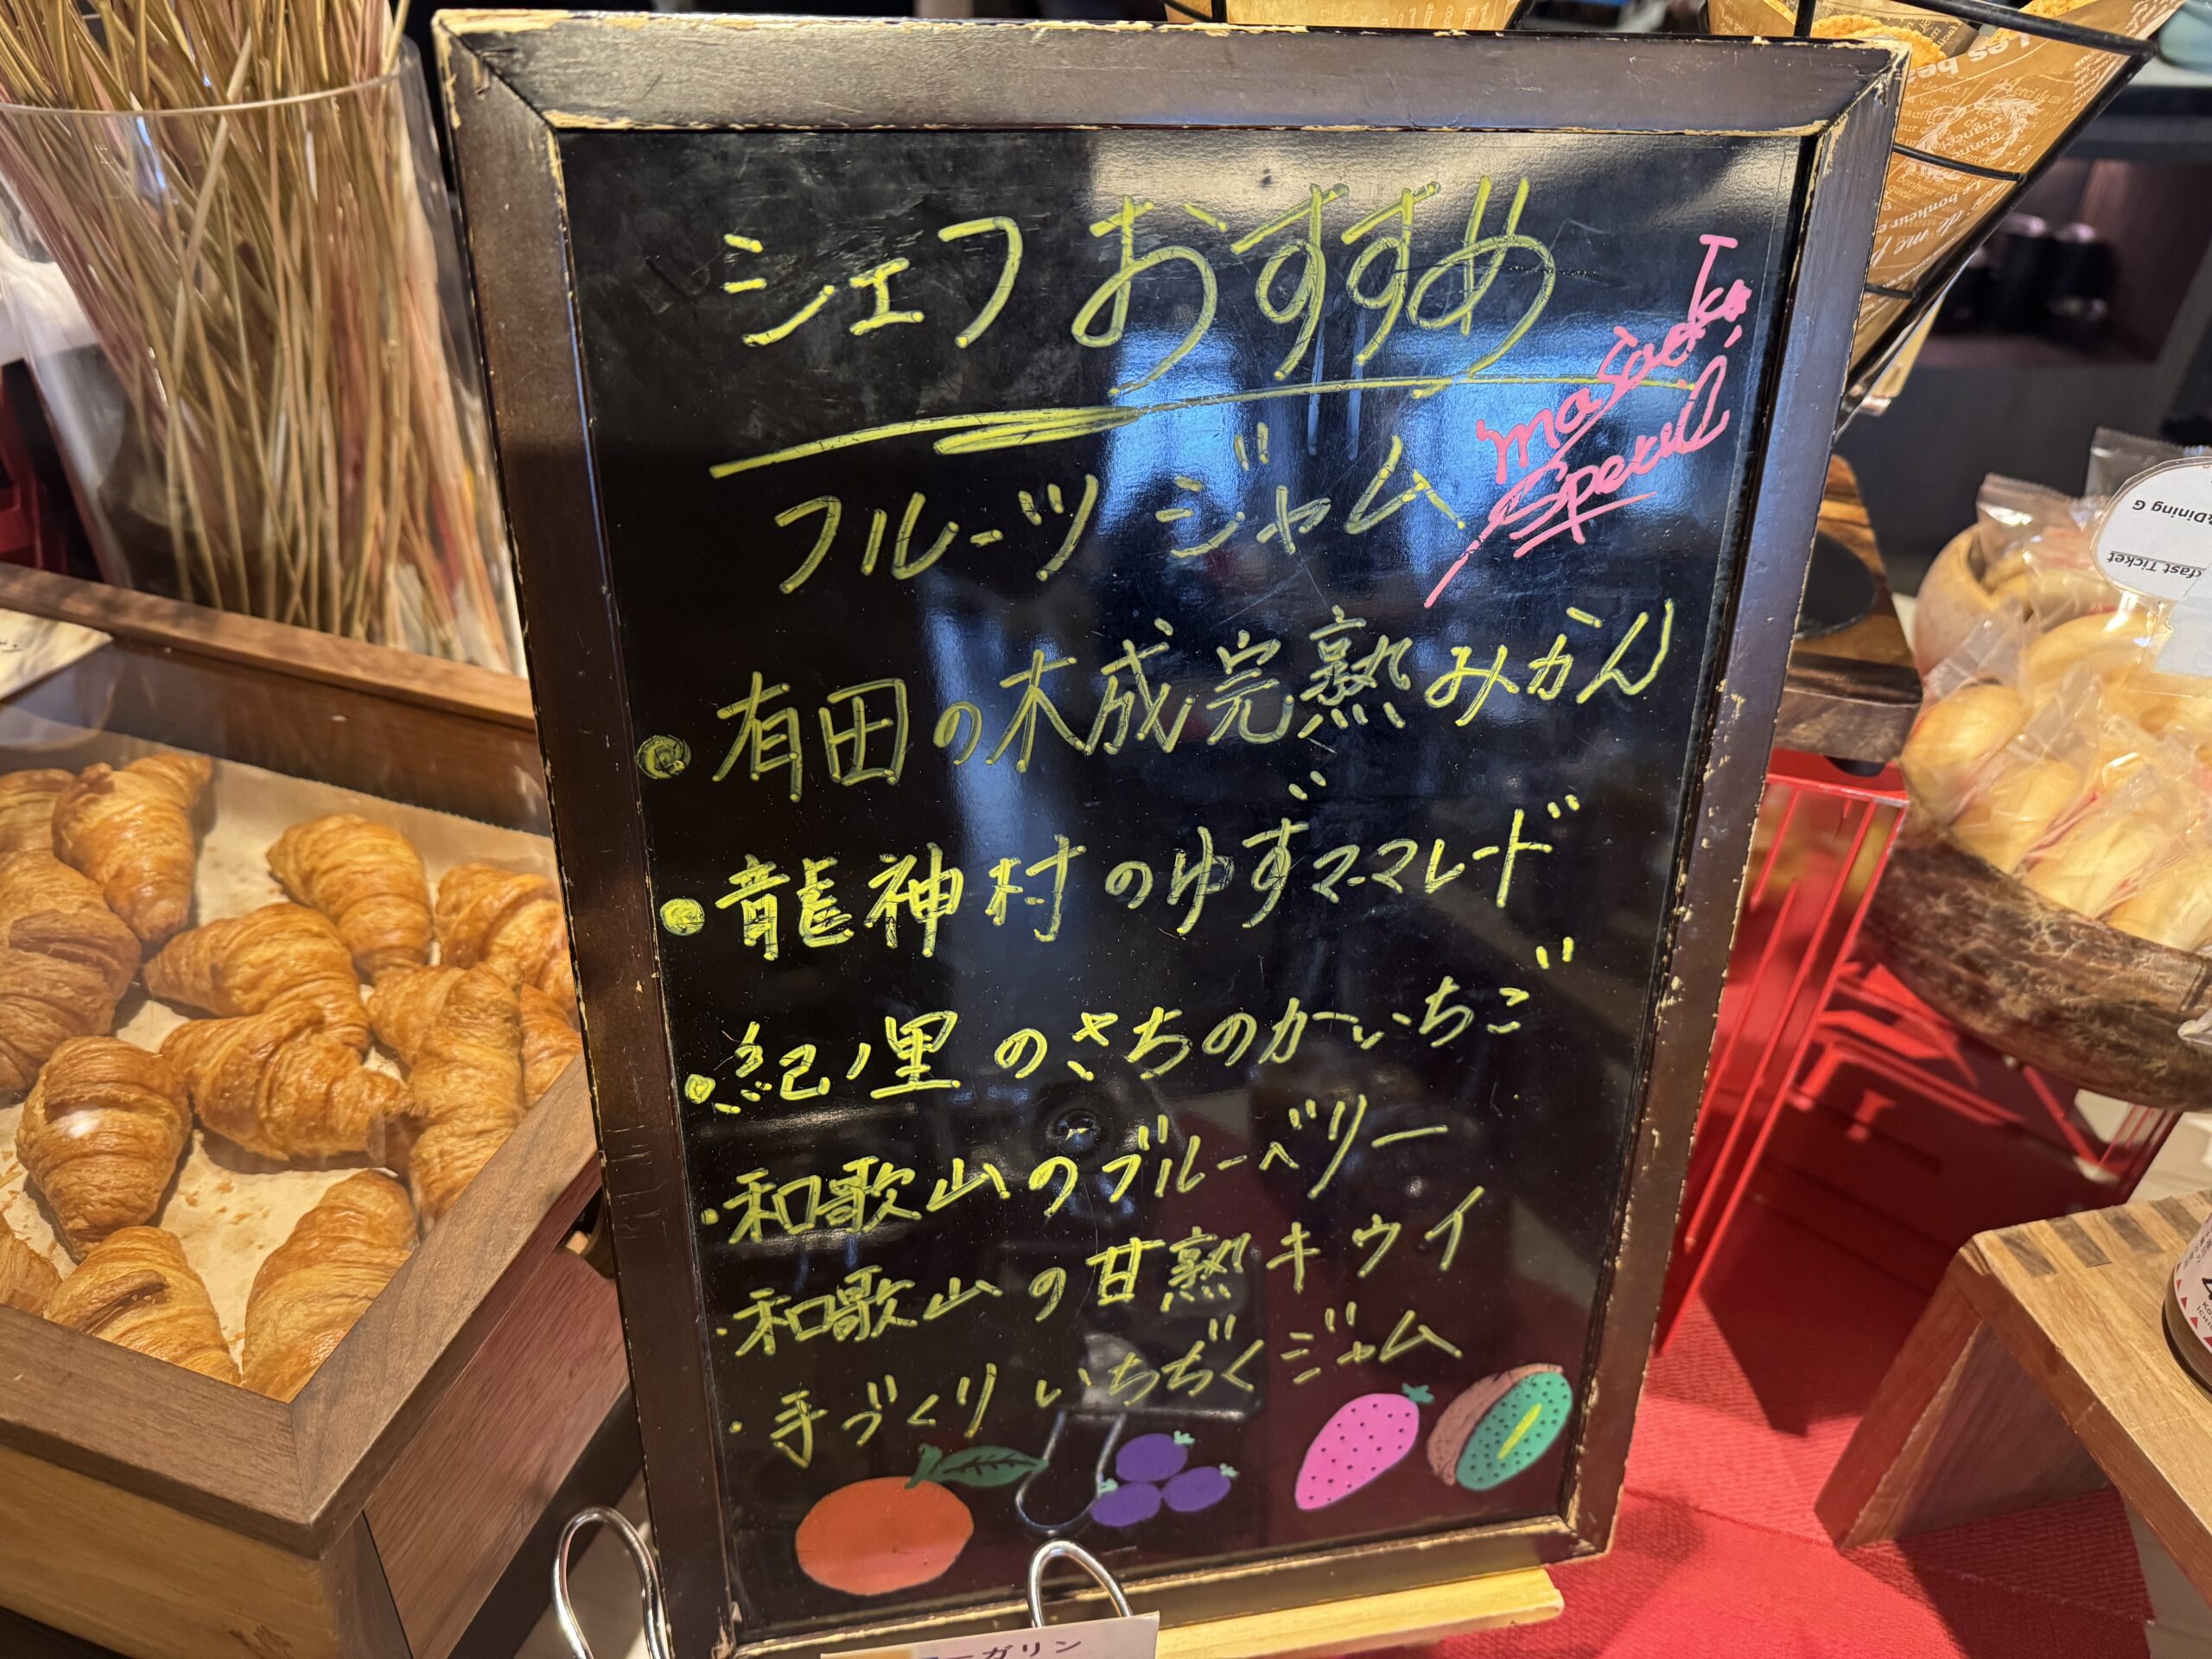 シェフおすすめ
フルーツジャム
Special
・有田の木成完熟みかん
・龍神村のゆずママレード
・紀ノ里のさちのかいちご
・和歌山のブルーベリー
・和歌山の甘熟キウイ
・手づくりいちぢくジャム
Dining G
fast Ticket
ガリン